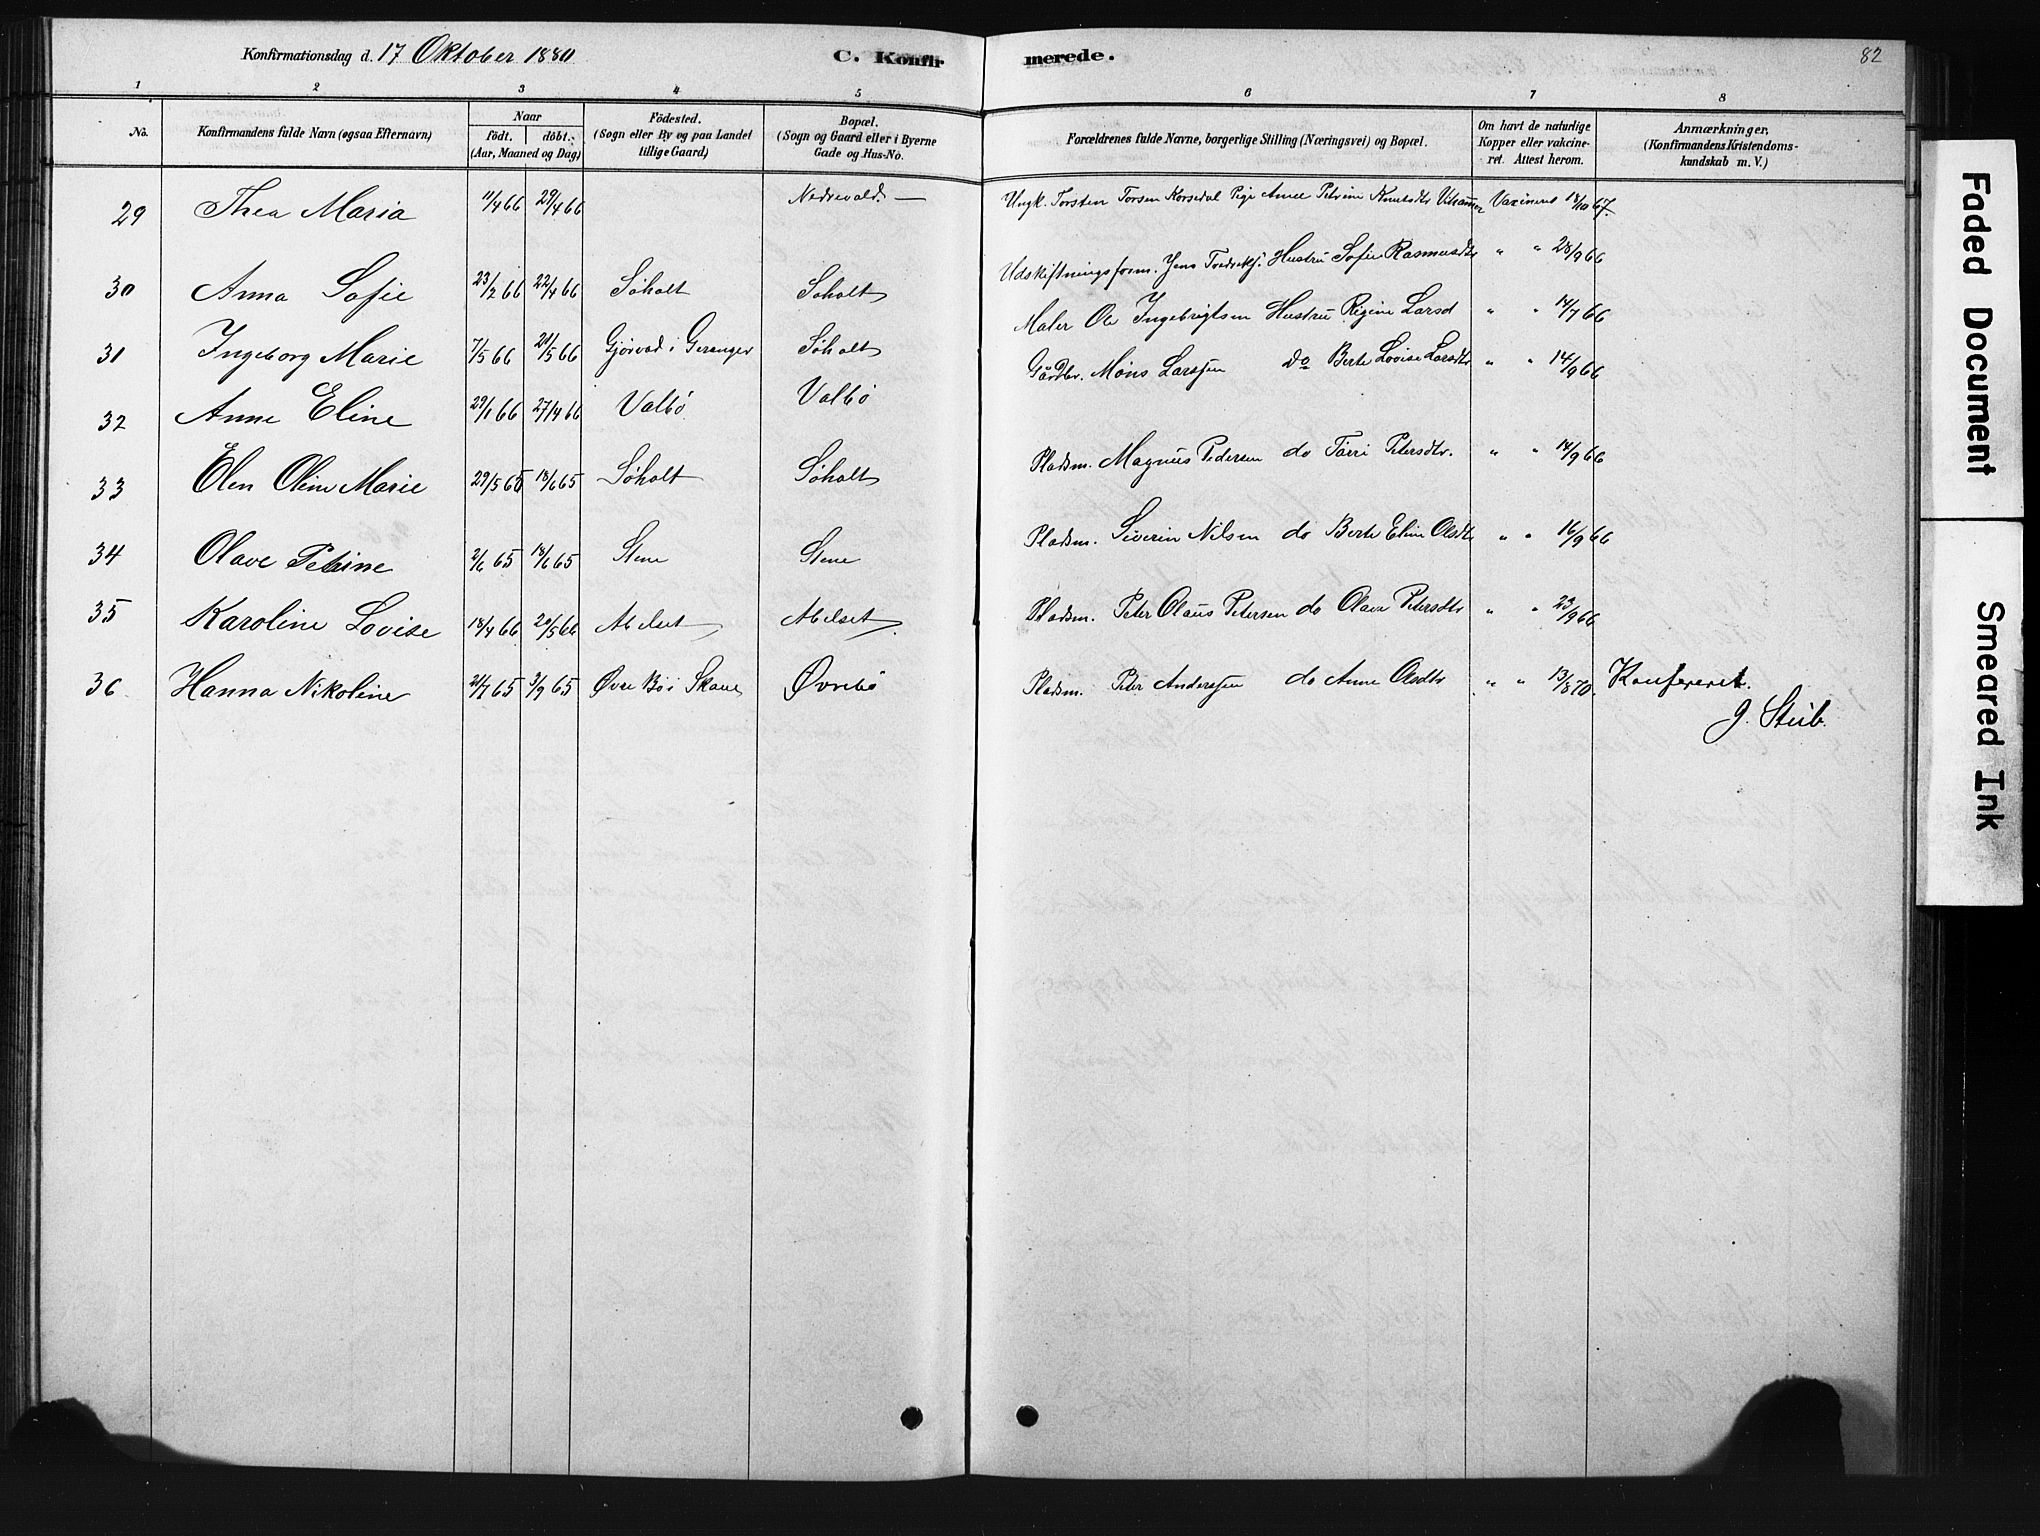 Konfirmationsdag d. 17 Oktober 1880 C. Konfirmerede. 82
1 2 3 4 5 6 7 8
No. Konfirmandens fulde Navn (ogsaa Efternavn) Naar födt. döbt. (Aar, Maaned og Dag) Födested. (Sogn eller By og paa Landet tillige Gaard) Bopæl. (Sogn og Gaard eller i Byerne Gade og Hus-No. Forældrenes fulde Navne, borgerlige Stilling (Næringsvei) og Bopæl. Om havt de naturlige Kopper eller vakcineret. Attest herom. Anmærkninger, (Konfirmandens Kristendomskundskab m. V.)
29 Thea Maria 11/4 66 29/4 66 Nedrevold. — Ungk. Torsten Torsen Korsedal Pige Anne Petrine Knutsdtr Vaxineret 18/10 67.
30 Anna Sofie 23/2 66 22/4 66 Söholt Søholt Udskiftningsform. Jens Hustru Sofie Rasmusdtr " " 28/9 66
31 Ingeborg Marie 7/5 66 20/5 66 Gjørvad i Geranger Søholt Maler Ole Ingebrigtsen Hustru Regine Larsd " " 14/7 66
32 Anne Eline 29/1 66 27/4 66 Valbø Valbø Gårdbr. Mons Larssen do Berte Lovise Larsdtr " " 14/9 66
33 Elen Oline Marie 29/5 65 18/6 65 Søholt Søholt Pladsm. Magnus Pedersen do Petersdtr. " " 14/9 66
34 Olave Petrine 2/6 65 18/6 65 Stene Stene Pladsm. Severin Nilsen do Berte Eline Olsdtr " " 16/9 66
35 Karoline Lovise 18/4 66 20/5 66 Abelset Abelset Pladsm. Peter Olaus Petersen do Olave Petersdtr " " 23/9 66
36 Hanna Nikoline 21/7 65 3/9 65 Øvre Bø i Skaue Øvrebø Pladsm. Peter Anderssen do Anne Olsdtr " " 13/8 70. Konfereret.
J. Stub.
Faded Document
Smeared Ink